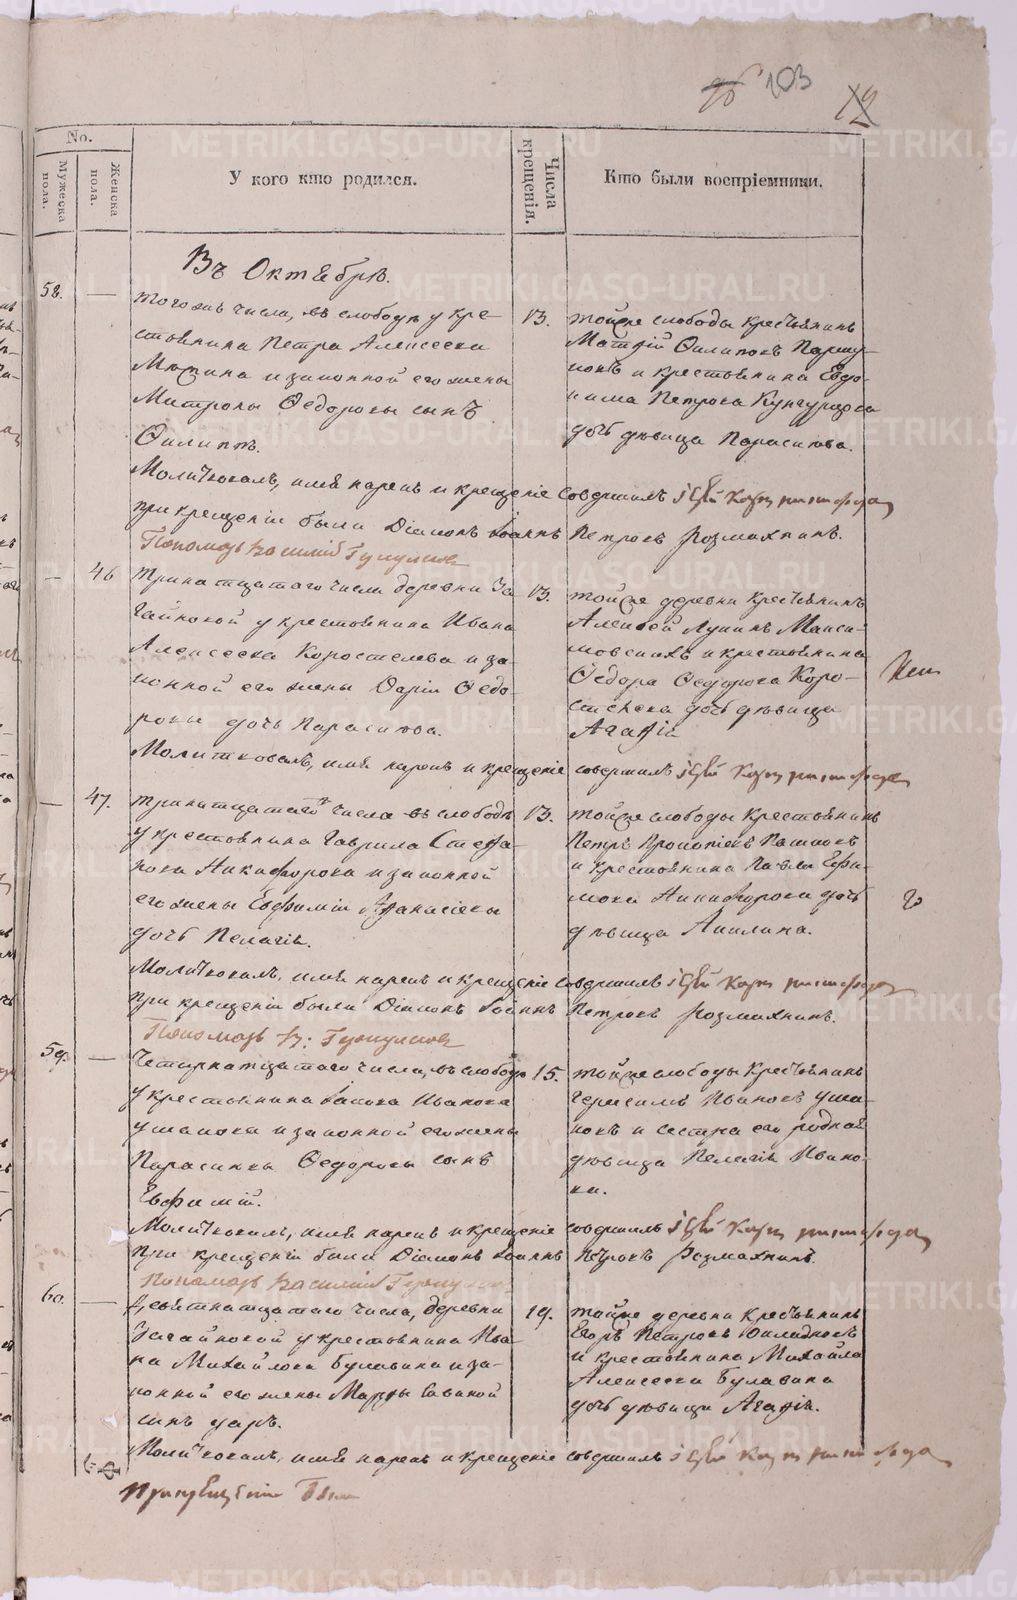 103
No.
Мужеска пола.
Женска пола.
У кого кто родился.
Числа крещенія.
Кто были воспріемники.
Въ Октябрѣ.
58.
тогожъ числа, въ слободѣ у кре-
стьянина Петра Алексеева
и законной его жены
Матроны Ѳедоровы сынъ
Филиппъ.
13.
тойже слободы крестьянинъ
Филиповъ
и крестьянина Евдо-
кима Петрова Кунгурцова
дочь дѣвица Парасковья.
Молитвовалъ, имя нарекъ и крещеніе совершилъ
при крещеніи были Діаконъ Іоаннъ Петровъ Розмахнинъ.
Пономарь Василій
46
Тринатцатого числа деревни За-
гайновой у крестьянина Ивана
Алексеева Коростелева и за-
конной его жены Дарьи Ѳедо-
ровы дочь Парасковья.
13.
тойже деревни крестьянинъ
Алексей Лукинъ Макси-
мовскихъ и крестьянина
Ѳедора Ѳедорова Коро-
стелева дочь дѣвица
Агафія
Молитвовалъ, имя нарекъ и крещеніе совершилъ
47.
Тринатцатого числа въ слободѣ
у крестьянина Гаврила Стефа-
нова Никифорова и законной
его жены Евфиміи Афанасіевы
дочь Пелагія.
13.
тойже слободы крестьянинъ
Петръ Прокопіевъ
и крестьянина Павла Ефи-
мова Никифорова дочь
дѣвица Акилина.
Молитвовалъ, имя нарекъ и крещеніе совершилъ
при крещеніи были Діаконъ Іоаннъ Петровъ Розмахнинъ.
Пономарь В:
59.
Четырнатцатого числа, въ слободѣ
у крестьянина Савы Иванова
Ушакова и законной его жены
Парасковьи Ѳедоровы сынъ
Евфимій.
15.
тойже слободы крестьянинъ
Герасимъ Ивановъ Уша-
ковъ и сестра его родная
дѣвица Пелагія Ивано-
ва.
Молитвовалъ, имя нарекъ и крещеніе совершилъ
при крещеніи были Діаконъ Іоаннъ Петровъ Розмахнинъ.
Пономарь Василій
60.
Девятнатцатого числа, деревни
Загайновой у крестьянина Ива-
на Михайлова Булавина и за-
конной его жены Марфы Савиной
сынъ Уаръ.
19.
тойже деревни крестьянинъ
Егоръ Петровъ
и крестьянина Михайла
Алексеева Булавина
дочь дѣвица Агафія.
Молитвовалъ, имя нарекъ и крещеніе совершилъ
При крещеніи были
METRIKI.GASO-URAL.RU